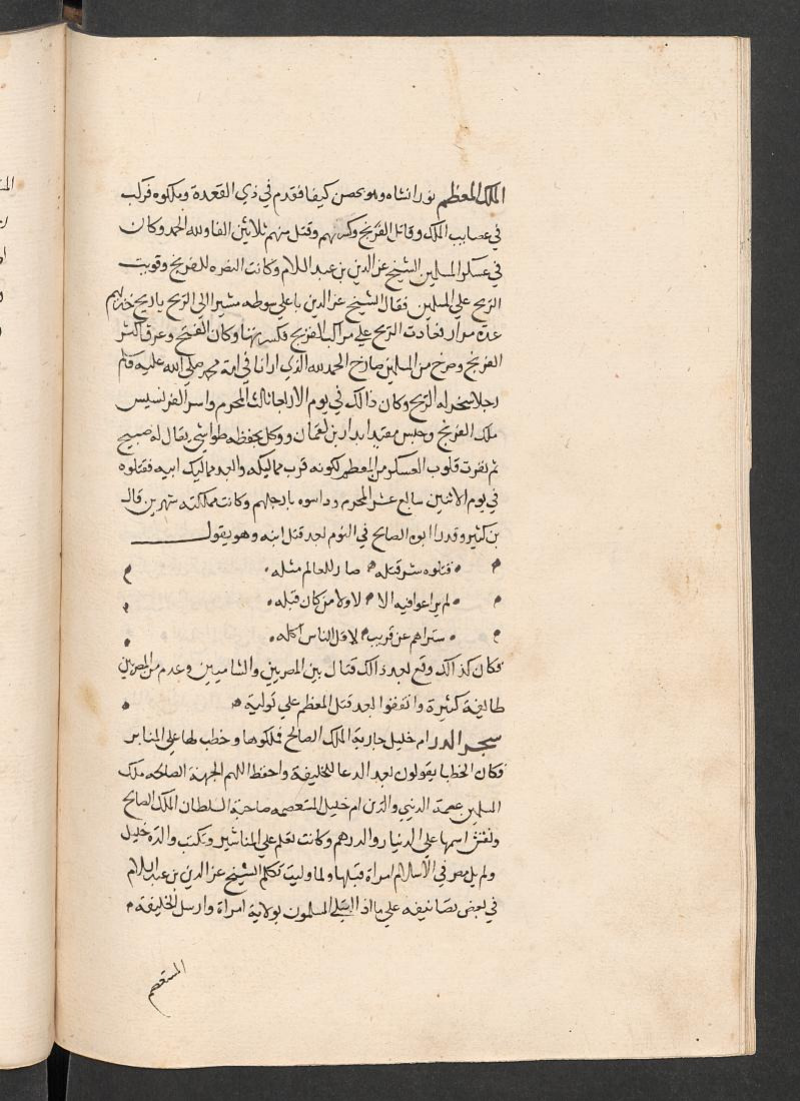 الملك المعظم تورانشاه وهو بحصن كيفا فقدم في ذي القعدة وملكوه فركب
في عصايب الملك وقاتل الفرنج وكسرهم وقتل منهم ثلاثين الفا ولله الحمد وكان
في عسكر المسلمين الشيخ عز الدين بن عبد السلام وكانت النصره للفرنج وقويت
الريح علي المسلمين فقال الشيخ عز الدين باعلي صوطه مشيرا الي الريح ياريح خذيهم
عدة مرار فعادت الريح علي مراكب الفرنج فكسرتها وكان الفتح وغرق اكثر
الفرنج وصرخ من المسلمين صارخ الحمد لله الذي ارانا في امة محمد صلي الله عليه وسلم
رجلا سخر له الريح وكان ذالك في يوم الاربعا ثالث المحرم واسر الفرنسيس
ملك الفرنج وحبس مقيدا بدار بن لقمان ووكل بحفظه طواشي يقال له صبيح
ثم نفرت قلوب العسكر من المعظم لكونه قرب مماليكه وابعد مماليك ابيه فقتلوه
في يوم الاثنين سابع عشر المحرم وداسوه بارجلهم وكانت مملكته شهرين قال
بن كثير وقد راا ابوه الصالح في النوم بعد قتل ابنه وهو يقول
قتلوه شر قتله صار للعالم مثله
لم يراعوا فيه الا لا ولا من كان قبله
ستراهم عن قريب لاقل الناس اكله
فكان كذالك وقع بعد ذالك قتال بين المصريين والشاميين وعدم من المصريين
طايفة كثيرة واتفقوا بعد قتل المعظم علي تولية
شجر الدر ام خليل جارية الملك الصالح فملكوها وخطب لها علي المنابر
فكان الخطبا يقولون بعد الدعا للخليفة واحفظ اللهم الجهة الصالحه ملك
المسلمين عصمة الدنيي والدين ام خليل المتعصمه صاحبة السلطان الملك الصالح
ونقش اسمها علي الدينار والدرهم وكانت تعلم علي المناشير وتكتب والدة خليل
ولم يل مصر في الاسلام امراة قبلها ولما وليت تكلم الشيخ عز الدين بن عبد السلام
في بعض تصانيفه علي ما اذا ابتلي المسلمون بولاية امراة وارسل الخليفة
المستعصم